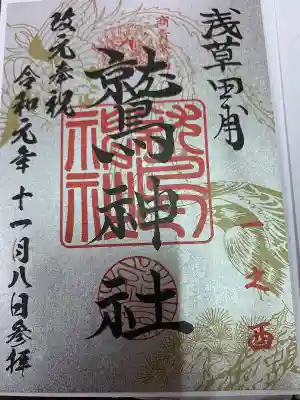 浅草田甫
一之酉
鷲神社
鷲神社
改元奉祝
令和元年十一月八日参拝